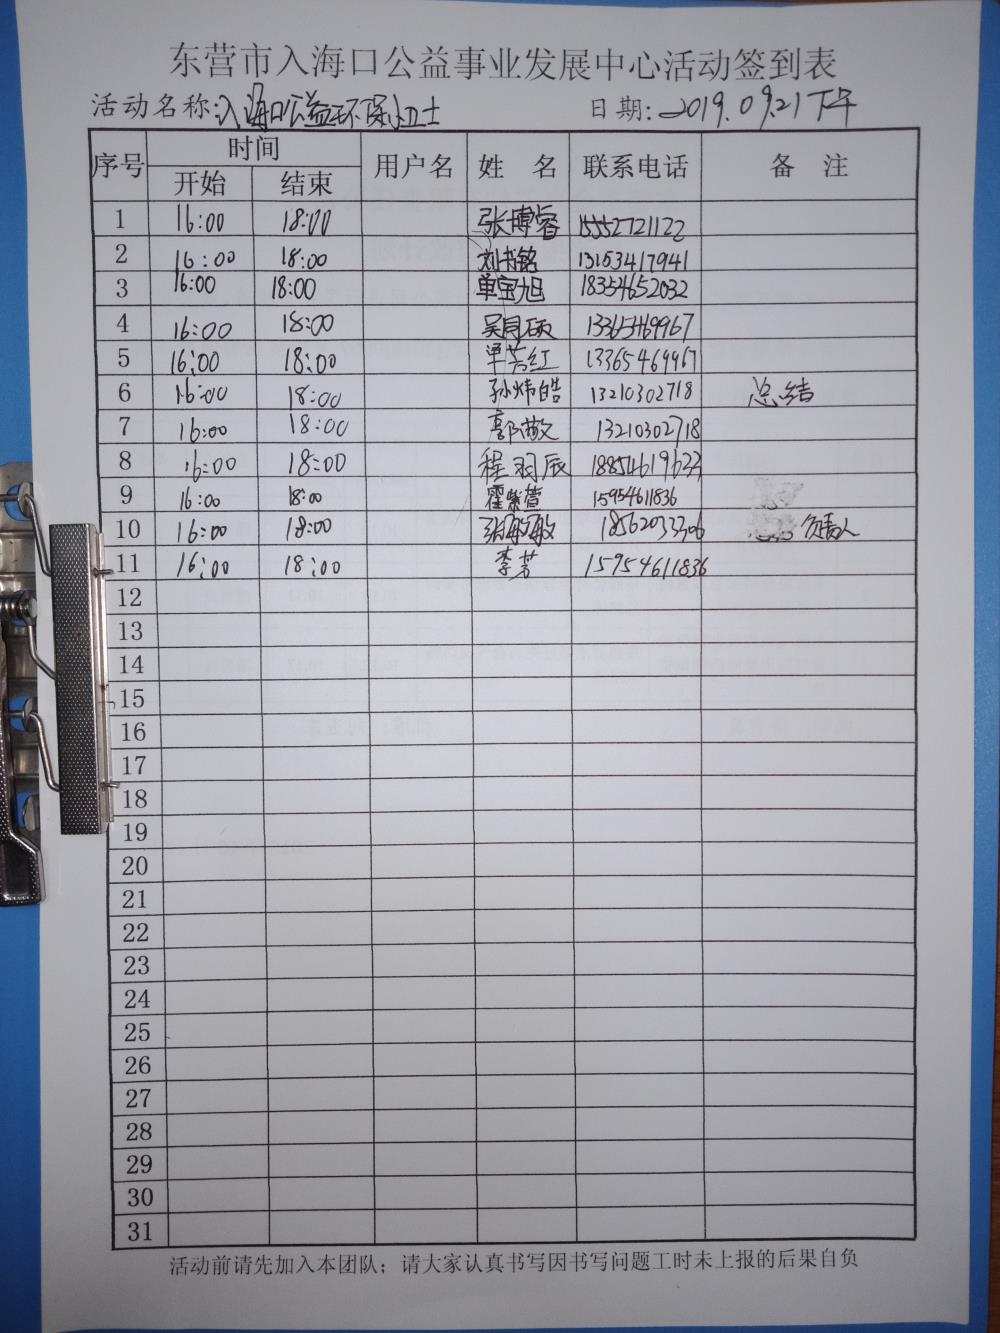 东营市入海口公益事业发展中心活动签到表
活动名称:入海口公益环保小卫士 日期:2019.09.21下午
序号 时间 用户名 姓名 联系电话 备注
开始 结束
1 16:00 18:00 张博睿 15552721122
2 16:00 18:00 刘书铭 13153417941
3 16:00 18:00 单宝旭 18354652032
4 16:00 18:00 吴同硕 13365469967
5 16:00 18:00 单芳红 13365469967
6 16:00 18:00 孙炜皓 13210302718 总结
7 16:00 18:00 郭敬 13210302718
8 16:00 18:00 程羽辰 18854619633
9 16:00 18:00 霍紫萱 15954611836
10 16:00 18:00 张敏敏 18562033306 负责人
11 16:00 18:00 李芳 15954611836
12
13
14
15
16
17
18
19
20
21
22
23
24
25
26
27
28
29
30
31
活动前请先加入本团队；请大家认真书写因书写问题工时未上报的后果自负